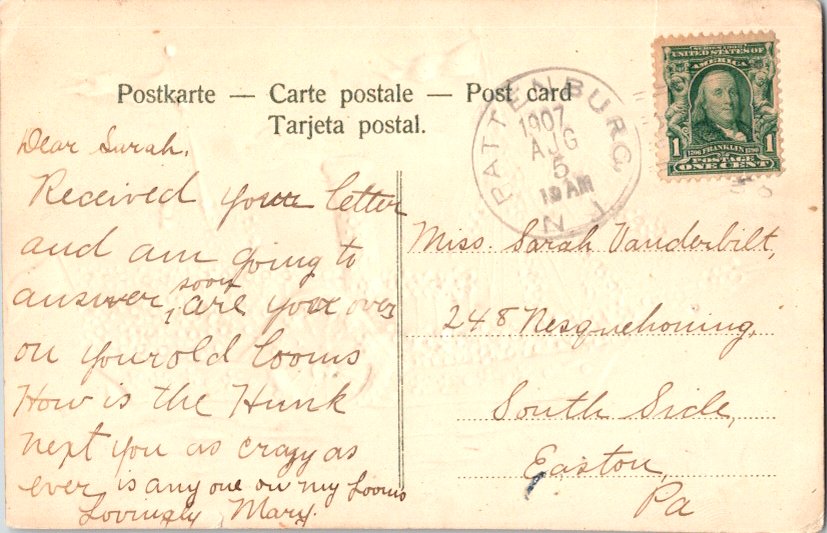 Postkarte — Carte postale — Post card
Tarjeta postal.
PATTENBURG, N.J.
1907
AUG
5
10 AM
SERIES 1902
UNITED STATES OF
AMERICA
1 1706 FRANKLIN 1790 1
POSTAGE
ONE CENT
Dear Sarah,
Received your letter
and am going to
answer soon, are you over
on your old looms
How is the Hunk
next you as crazy as
ever is any one on my looms
Lovingly Mary.
Miss. Sarah Vanderbilt,
248 Nesquehoning,
South Side,
Easton,
Pa